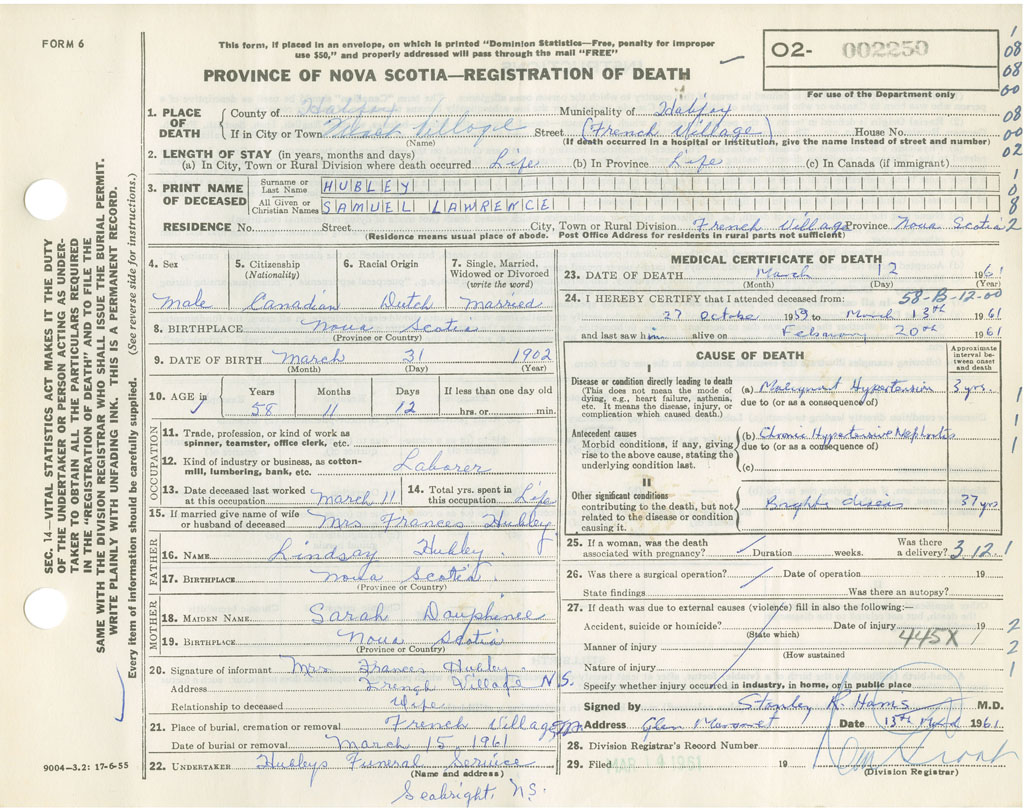 FORM 6
This form, if placed in an envelope, on which is printed "Dominion Statistics—Free, penalty for improper
use $50," and properly addressed will pass through the mail "FREE"
PROVINCE OF NOVA SCOTIA—REGISTRATION OF DEATH
O2- 002250
For use of the Department only
1. PLACE OF DEATH
County of Halifax Municipality of Halifax
If in City or Town French Village Street (French Village) House No.
(Name) (If death occurred in a hospital or institution, give the name instead of street and number)
2. LENGTH OF STAY (in years, months and days)
(a) In City, Town or Rural Division where death occurred Life (b) In Province Life (c) In Canada (if immigrant)
3. PRINT NAME OF DECEASED
Surname or Last Name HUBLEY
All Given or Christian Names SAMUEL LAWRENCE
RESIDENCE No. Street City, Town or Rural Division French Village Province Nova Scotia
(Residence means usual place of abode. Post Office Address for residents in rural parts not sufficient)
4. Sex Male
5. Citizenship (Nationality) Canadian
6. Racial Origin Dutch
7. Single, Married, Widowed or Divorced (write the word) Married
8. BIRTHPLACE Nova Scotia
(Province or Country)
9. DATE OF BIRTH March 31 1902
(Month) (Day) (Year)
10. AGE in Years 58 Months 11 Days 12 If less than one day old hrs. or min.
OCCUPATION
11. Trade, profession, or kind of work as
spinner, teamster, office clerk, etc.
12. Kind of industry or business, as cotton-
mill, lumbering, bank, etc. Laborer
13. Date deceased last worked at this occupation March 11
14. Total yrs. spent in this occupation Life
15. If married give name of wife
or husband of deceased Mrs Frances Hubley
FATHER
16. NAME Lindsay Hubley
17. BIRTHPLACE Nova Scotia
(Province or Country)
MOTHER
18. MAIDEN NAME Sarah Dauphinee
19. BIRTHPLACE Nova Scotia
(Province or Country)
20. Signature of informant Mrs Frances Hubley
Address French Village N.S.
Relationship to deceased Wife
21. Place of burial, cremation or removal French Village
Date of burial or removal March 15, 1961
22. UNDERTAKER Hubleys Funeral Service
(Name and address)
Seabright, N.S.
MEDICAL CERTIFICATE OF DEATH
23. DATE OF DEATH March 12 1961
(Month) (Day) (Year)
24. I HEREBY CERTIFY that I attended deceased from: 58-B-12-00
27 October 1959 to March 13th 1961
and last saw him alive on February 20th 1961
CAUSE OF DEATH
Approximate interval between onset and death
I
Disease or condition directly leading to death
(This does not mean the mode of
dying, e.g., heart failure, asthenia,
etc. It means the disease, injury, or
complication which caused death.)
(a) Malignant Hypertension 3 yrs.
due to (or as a consequence of)
Antecedent causes
Morbid conditions, if any, giving
rise to the above cause, stating the
underlying condition last.
(b) Chronic Hypertensive Nephritis
due to (or as a consequence of)
(c)
II
Other significant conditions
contributing to the death, but not
related to the disease or condition
causing it.
Brights diseas 37 yrs
25. If a woman, was the death
associated with pregnancy? Duration weeks. Was there a delivery? 3.12.1
26. Was there a surgical operation? Date of operation 19
State findings Was there an autopsy?
27. If death was due to external causes (violence) fill in also the following:—
Accident, suicide or homicide? Date of injury 19
(State which)
Manner of injury 445X
(How sustained)
Nature of injury
Specify whether injury occurred in industry, in home, or in public place
Signed by Stanley R. Hams M.D.
Address Glen Margaret Date 13th March 1961.
28. Division Registrar's Record Number
29. Filed 19
(Division Registrar)
SEC. 14—VITAL STATISTICS ACT MAKES IT THE DUTY
OF THE UNDERTAKER OR PERSON ACTING AS UNDER-
TAKER TO OBTAIN ALL THE PARTICULARS REQUIRED
IN THE "REGISTRATION OF DEATH" AND TO FILE THE
SAME WITH THE DIVISION REGISTRAR WHO SHALL ISSUE THE BURIAL PERMIT.
WRITE PLAINLY WITH UNFADING INK. THIS IS A PERMANENT RECORD.
Every item of information should be carefully supplied. (See reverse side for instructions.)
9004-3.2: 17-6-55
1
08
08
00
08
00
02
1
0
8
2
1
1
1
1
2
2
1